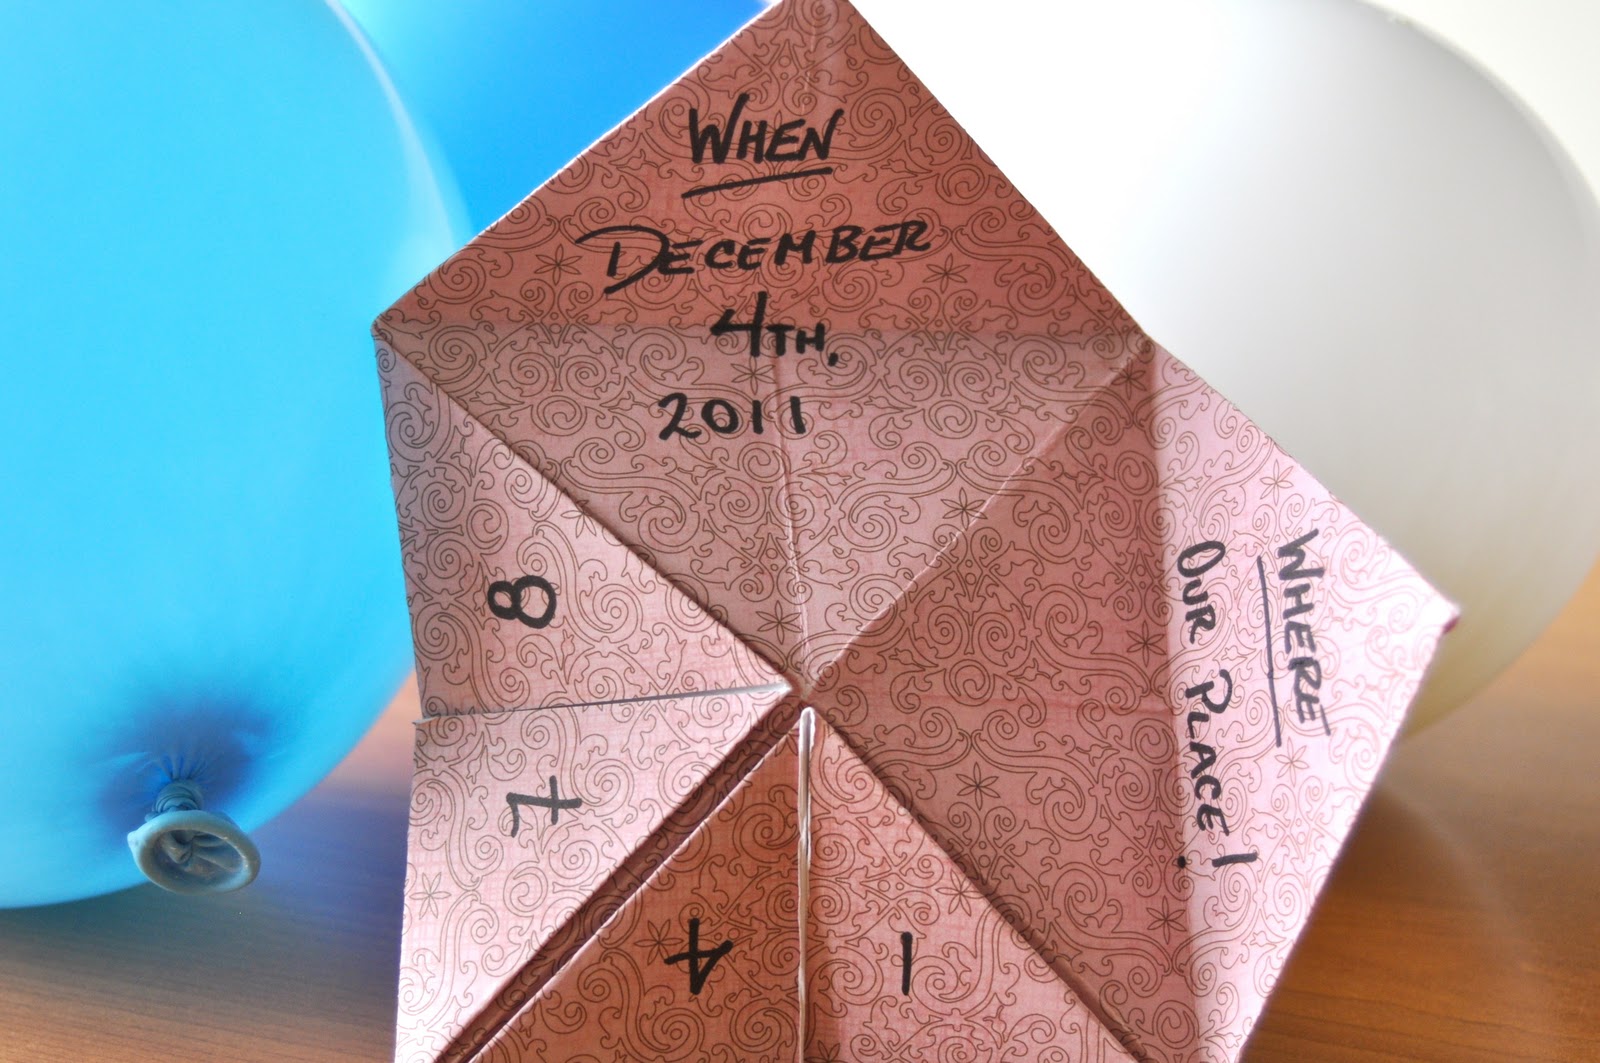 WHEN
DECEMBER
4TH,
2011
WHERE
OUR PLACE!
8
7
4
1